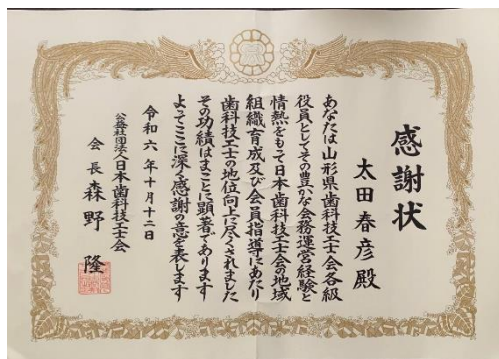 感謝状
太田春彦殿
あなたは山形県歯科技工士会各級
役員としてその豊かな会務運営経験と
情熱をもって日本歯科技工士会の地域
組織育成及び会員指導にあたり
歯科技工士の地位向上に尽くされました
その功績はまことに顕著であります
よってここに深く感謝の意を表します
令和六年十月十二日
公益社団法人日本歯科技工士会
会長森野隆